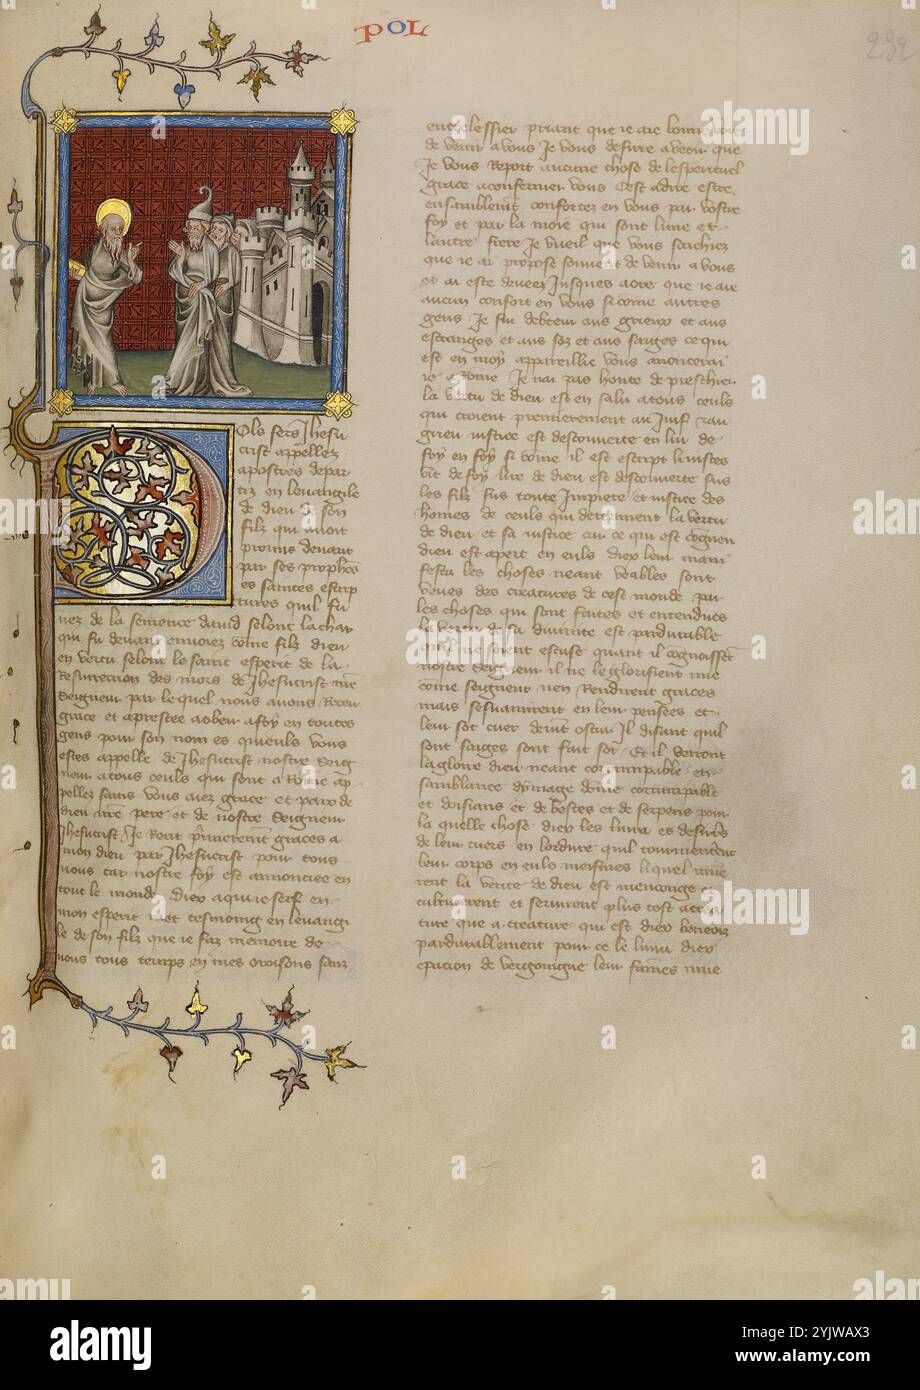 POL
292
Pols sers Jhesu
crist appellez
apostres depar
tiz en leuangile
de dieu de son
filz qui auoit
promis deuant
par ses prophetes
es saintes escrip
tures quil fu
nez de la semence dauid selonc la char
qui fu deuant enuoiez cõme filz dieu
en vertu selonc le saint esperit de la
Resurrection des mors de Jhesucrist nrẽ
Seigneur par le quel nous auons Receu
grace et apostree a obeir a foy en toutes
gens pour son nom es quieuls vous
estes appelle de Jhesucrist nostre seig
neur a tous ceuls qui sont a Rõme ap
pellez sains vous aiez grace et paix de
dieu nrẽ pere et de nostre Seigneur
Jhesucrist Je Rent premierement graces a
mon dieu par Jhesucrist pour tous
vous car vostre foy est annonciee en
tout le monde diex a qui ie serf en
mon esperit met tesmoing en leuangi
le de son filz que ie faz memoire de
vous tous temps en mes oroisons sanz
entrelessier priant que ie aie bonne
de venir a vous Je vous desirre a veoir que
Je vous Report aucune chose de lesperituel
grace a confermer vous Cest a dire estre
ensamblement confortez en vous par vostre
foy et par la moie qui sont lune et
lautre frere Je vueil que vous sachiez
que ie ai propose souuent de venir a vous
et ai este deueez Jusques a ore que ie aie
aucun confort en vous si come autres
gens Je sui debteur aus grieux et aus
estranges et aus sos et aus sages ce qui
est en moy appareillie vous anoncerai
ie a Rome Je nai pas honte de preschier
la vertu de dieu est en salu a tous ceuls
qui croient premierement au Juif au
grieu iustice est descouuerte en lui de
foy en foy si cõme il est escript li iustes
vit de foy lire de dieu est descouuerte sus
les filz sus toute Impiete et iustice des
homes de ceuls qui detiennent la vertu
de dieu et sa iustice car ce qui est cogneu
dieu est apert en euls diex leur mani
festa les choses neant veables sont
veues des creatures de cest monde par
les choses qui sont faites et entendues
la vertu de sa diuinite est pardurable
quil ne soient escuse quant il cognoissẽt
nostre Seigneur il ne le glorifient mie
cõme seigneur nen Rendirent graces
mais sesuanuirent en leur pensees et
leur sot cuer deuint oscur Il disant quil
sont sages sont fait sot Et il
la gloire dieu neant corrumpable en
samblance dymage dõme corrumpable
et doisiaus et de bestes et de serpens pour
la quelle chose diex les liura es desirs
de leur cuers en lordure quil tourmentent
leur corps en euls meismes li quel mue
rent la verite de dieu est menconge
cultiuerent et seruirent plus tost a crea
ture que a creature qui est diex beneoiz
pardurablement pour ce le liura diex
epacion de vergoingne leur fames mue
alamy
Image ID: 2YJWAX3
www.alamy.com